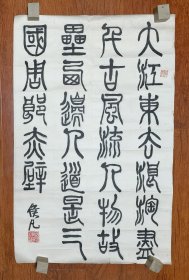 大江東去浪淘盡
千古風流人物故
壘西邊人道是三
國周郎赤壁